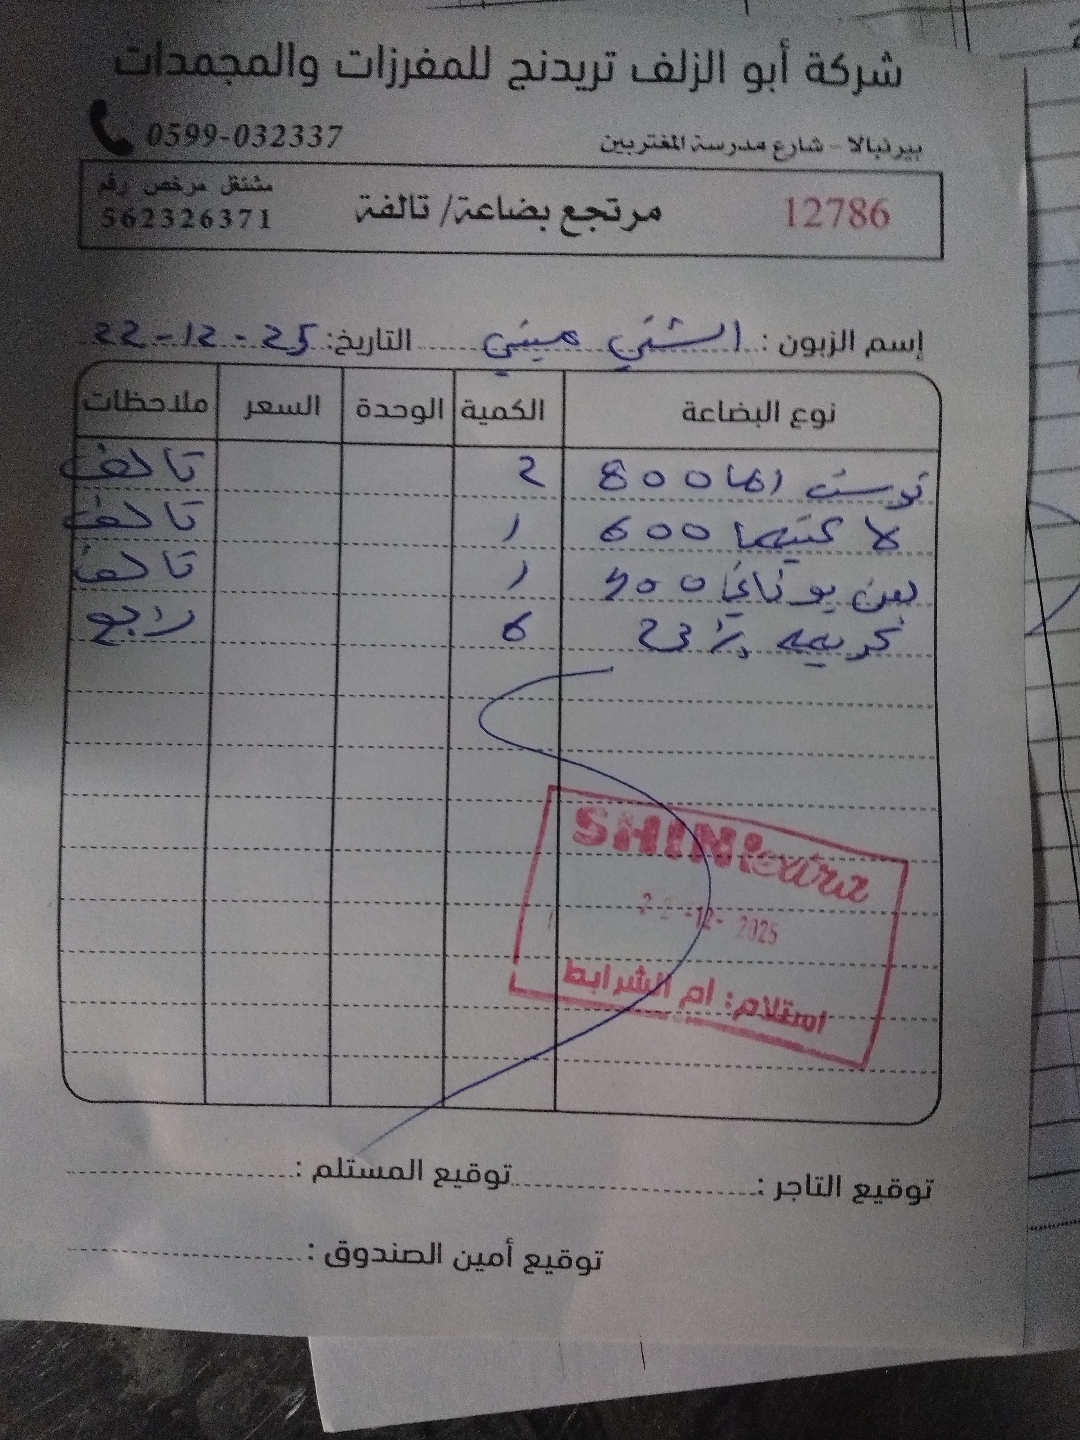 شركة أبو الزلف تريدنج للمفرزات والمجمدات
بيرنبالا - شارع مدرسة المغتربين 0599-032337
12786 مرتجع بضاعة/ تالفة مشتغل مرخص رقم 562326371
إسم الزبون : الشني ميني التاريخ: 22-12-25
نوع البضاعة الكمية الوحدة السعر ملاحظات
توست 800 2 تالف
600 1 تالف
يوناني 1 تالف
كريمه 23% 6 راجع
SHINI extra
22-12-2025
استلام: ام الشرايط
توقيع التاجر : توقيع المستلم :
توقيع أمين الصندوق :